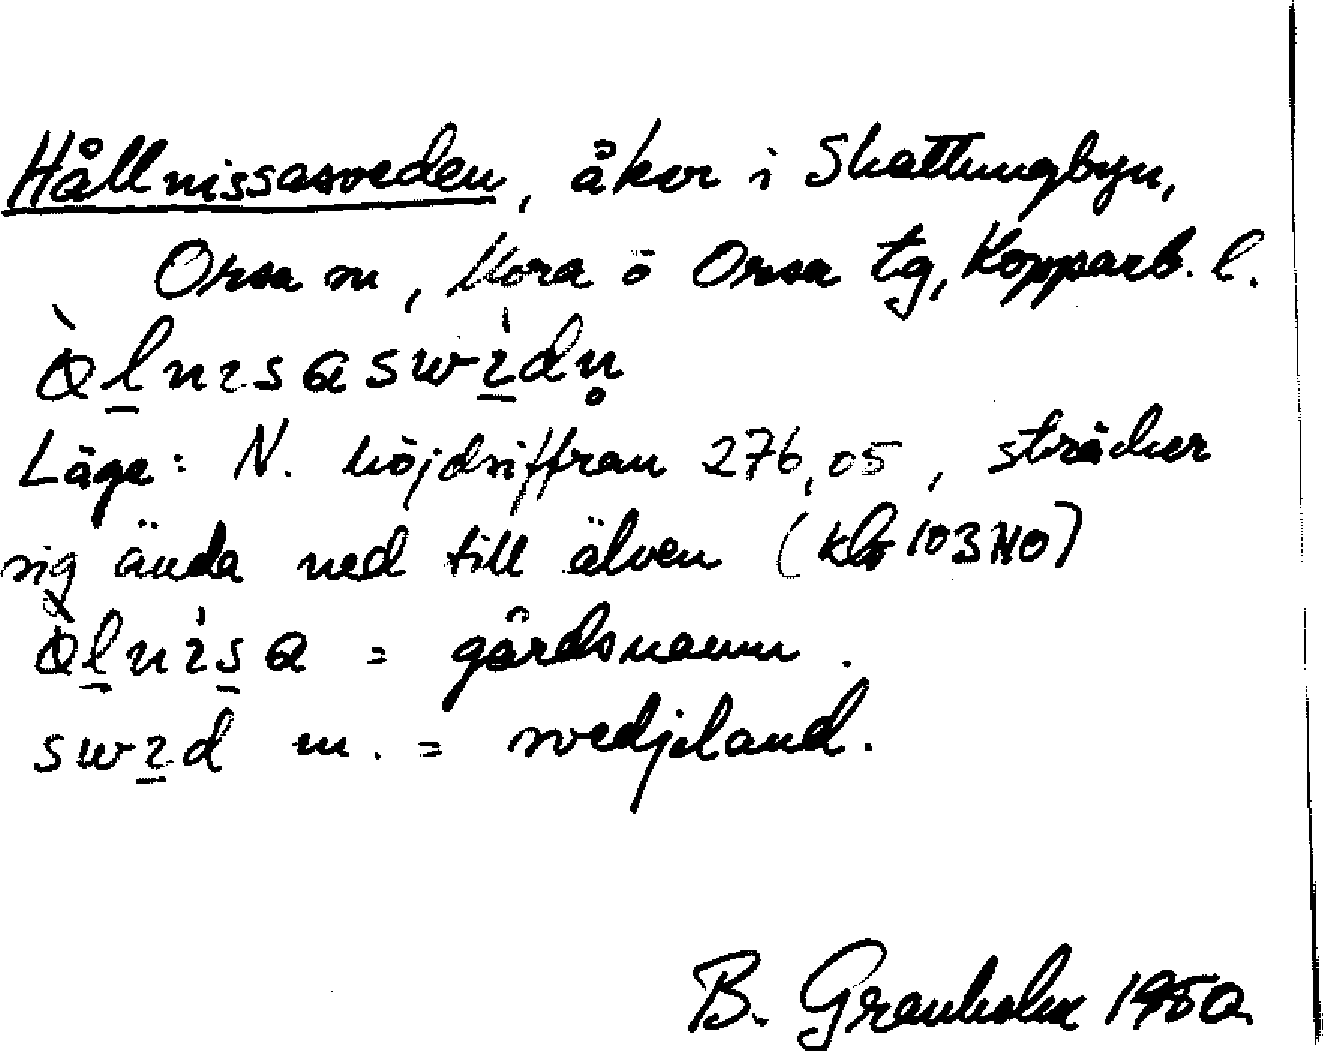 Hållnissasveden, åker i Skattungbyn,
Orsa sn, Mora o Orsa tg, Kopparb. l.
Läge: N. höjdsiffran 276,05, sträcker
sig ända ned till älven (kbl 103 NO)
= gårdsnamn.
swɩd m. = svedjeland.
B. Granholm 1950